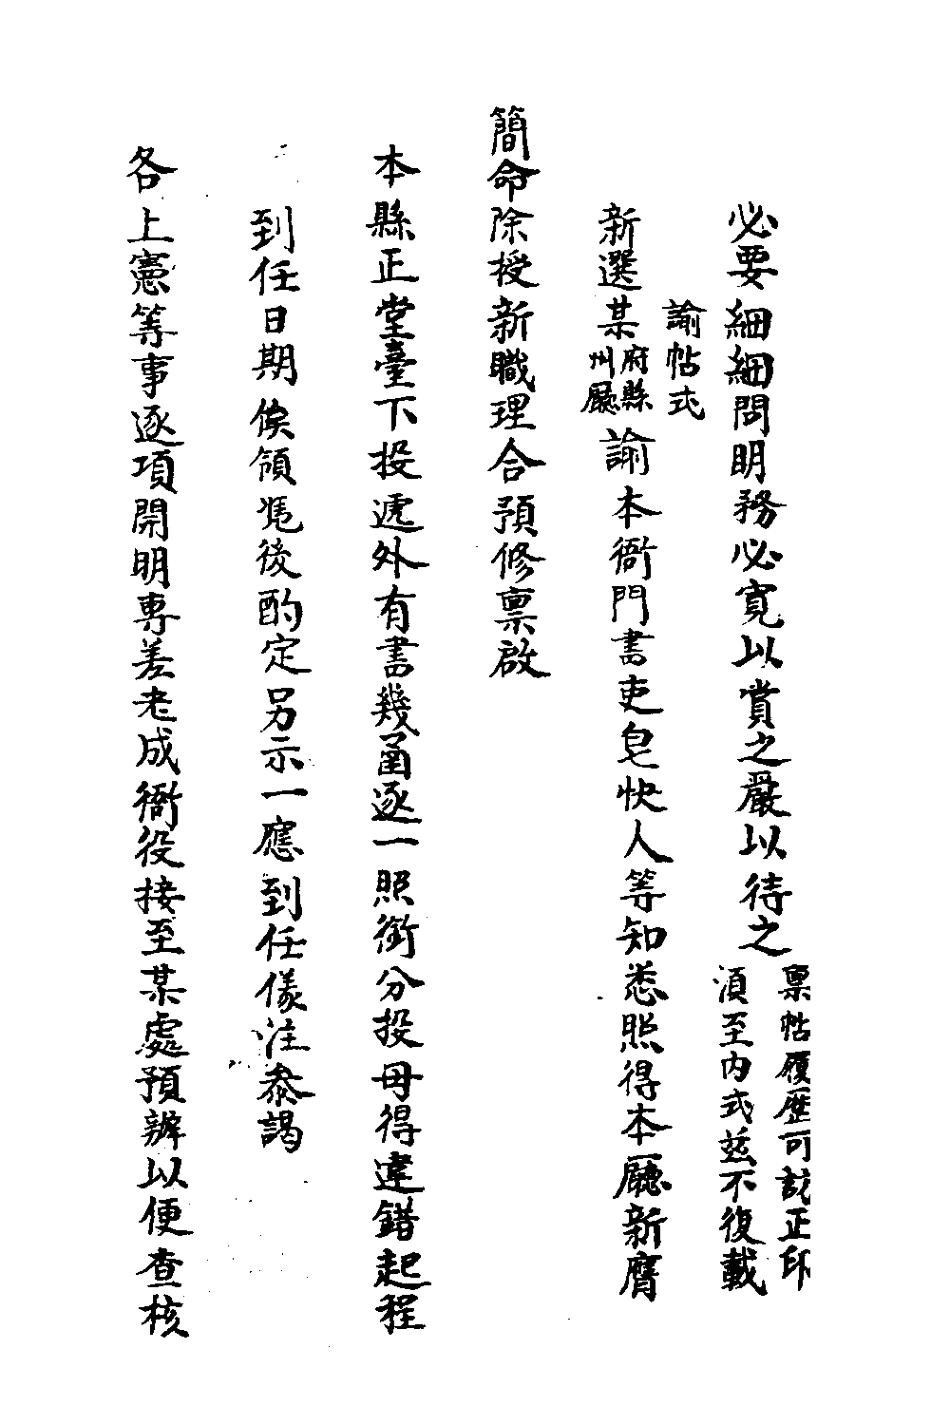 必要細細問明務必寬以賞之嚴以待之稟帖履歷可說正印
須至內式茲不復載
諭帖式
新選某府縣州廳諭本衙門書吏皂快人等知悉照得本廳新膺
簡命除授新職理合預修稟啟
本縣正堂臺下投遞外有書幾函逐一照銜分投毋得違錯起程
到任日期俟領凴後酌定另示一應到任儀注叅謁
各上憲等事逐項開明專差老成衙役接至某處預辦以便查核